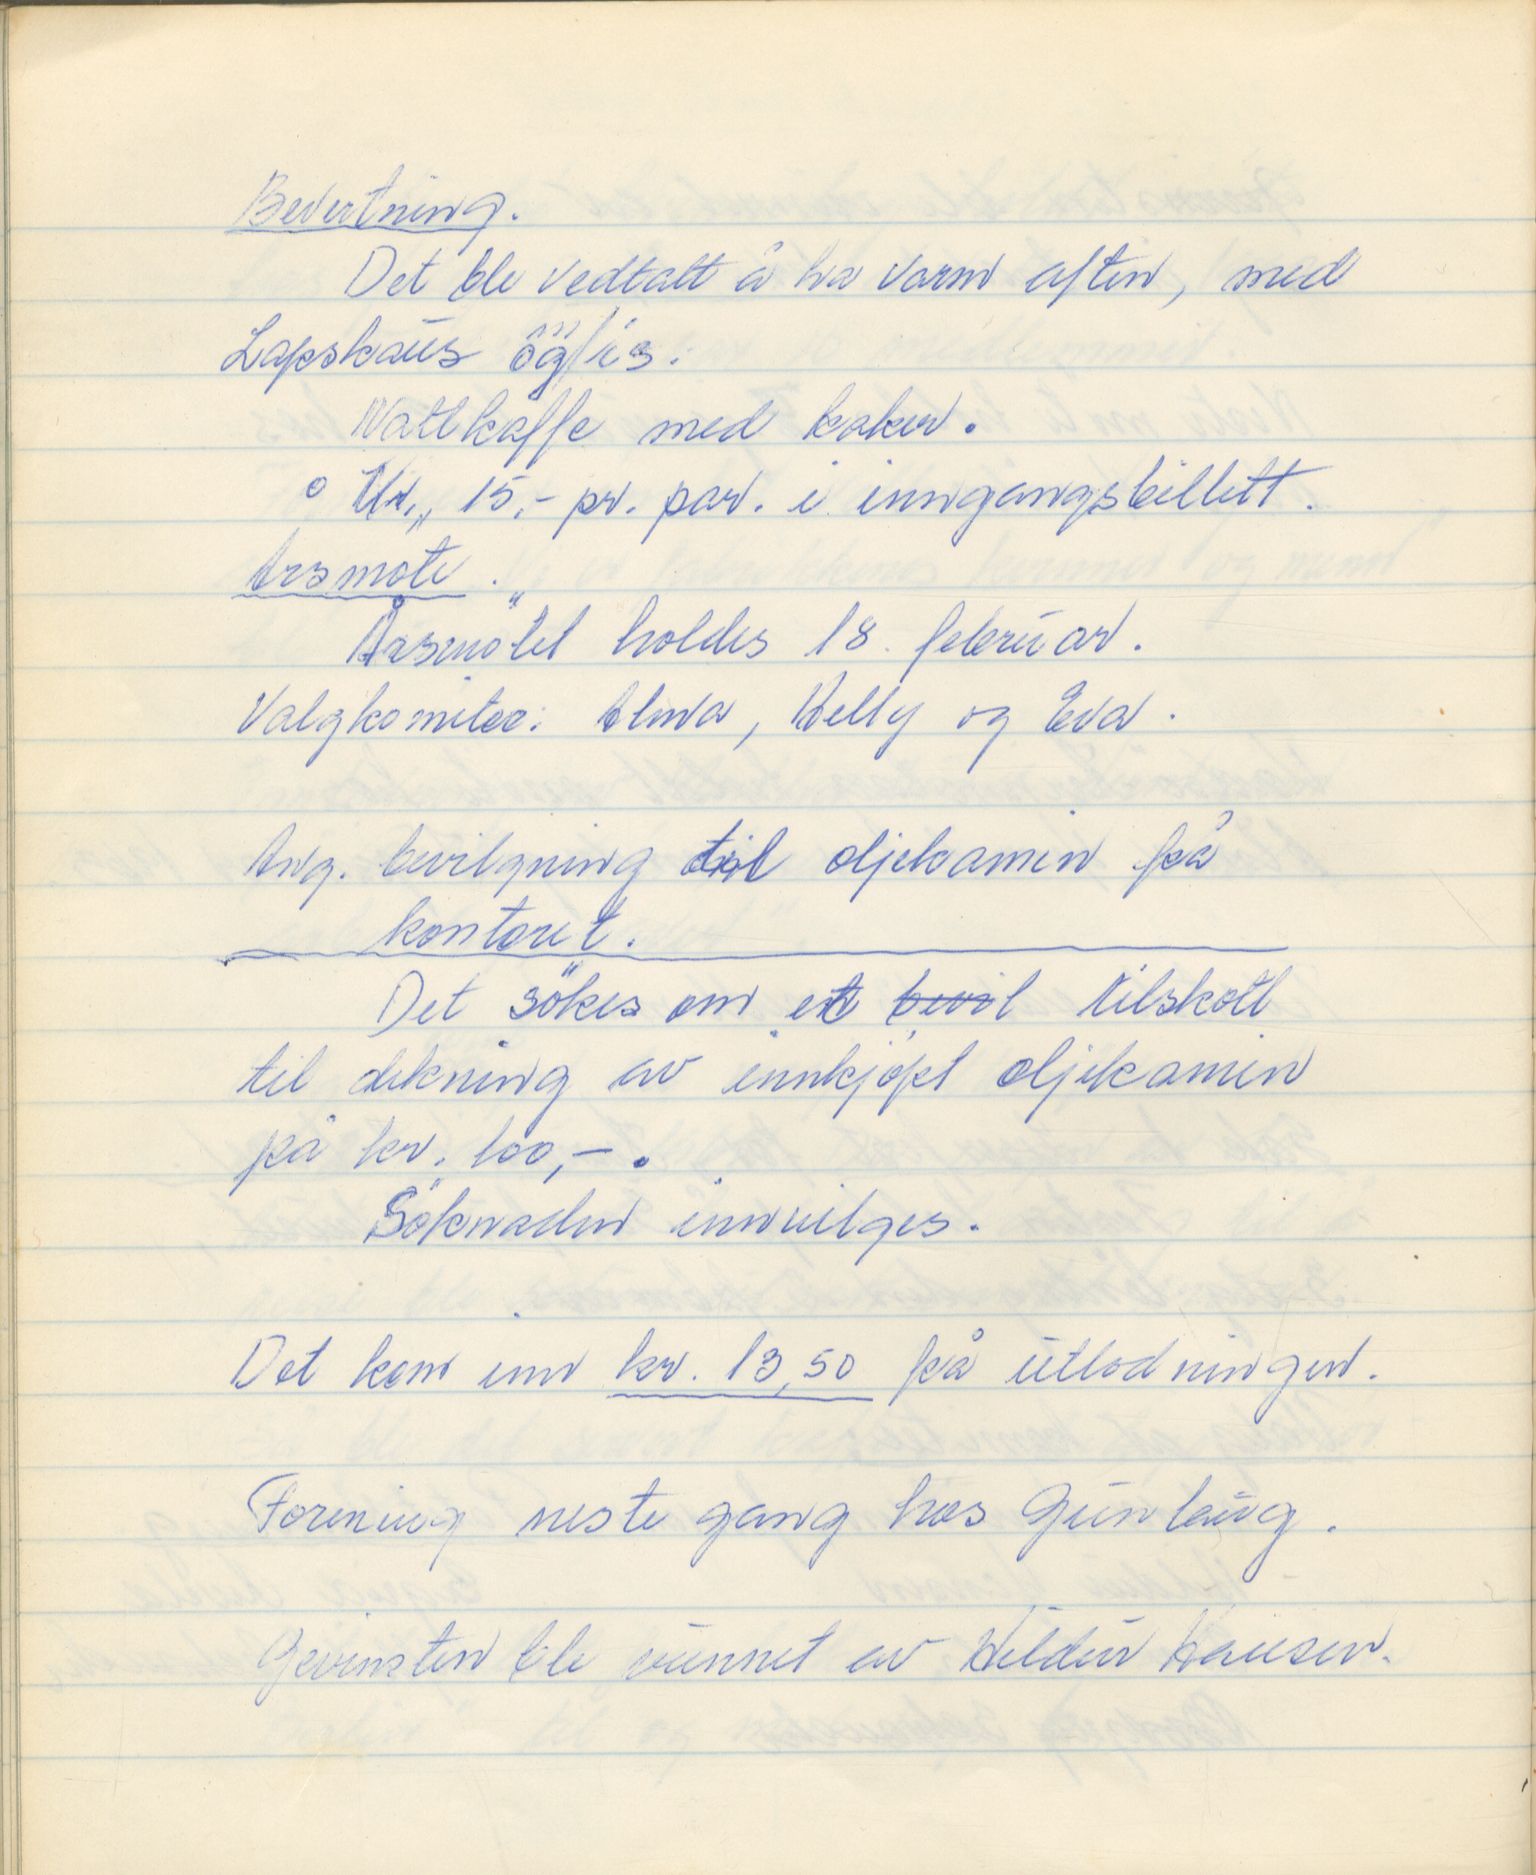 Bevertning.
Det ble vedtatt å ha varm aften, med
Lapskaus og is.
Nattkaffe med kaker.
Kr. 15,- pr. par. i inngangsbillett.
Årsmöte.
Årsmötet holdes 18. februar.
Valgkomitee: Alma, Helly og Eva.
Ang. bevilgning til oljekamin på
kontoret.
Det sökes om et bevil tilskott
til dekning av innkjöpt oljekamin
på kr. 100,-.
Söknaden innvilges.
Det kom inn kr. 13,50 på utlodningen.
Forening neste gang hos Gunlaug.
Gevinsten ble vunnet av Hildur Hansen.